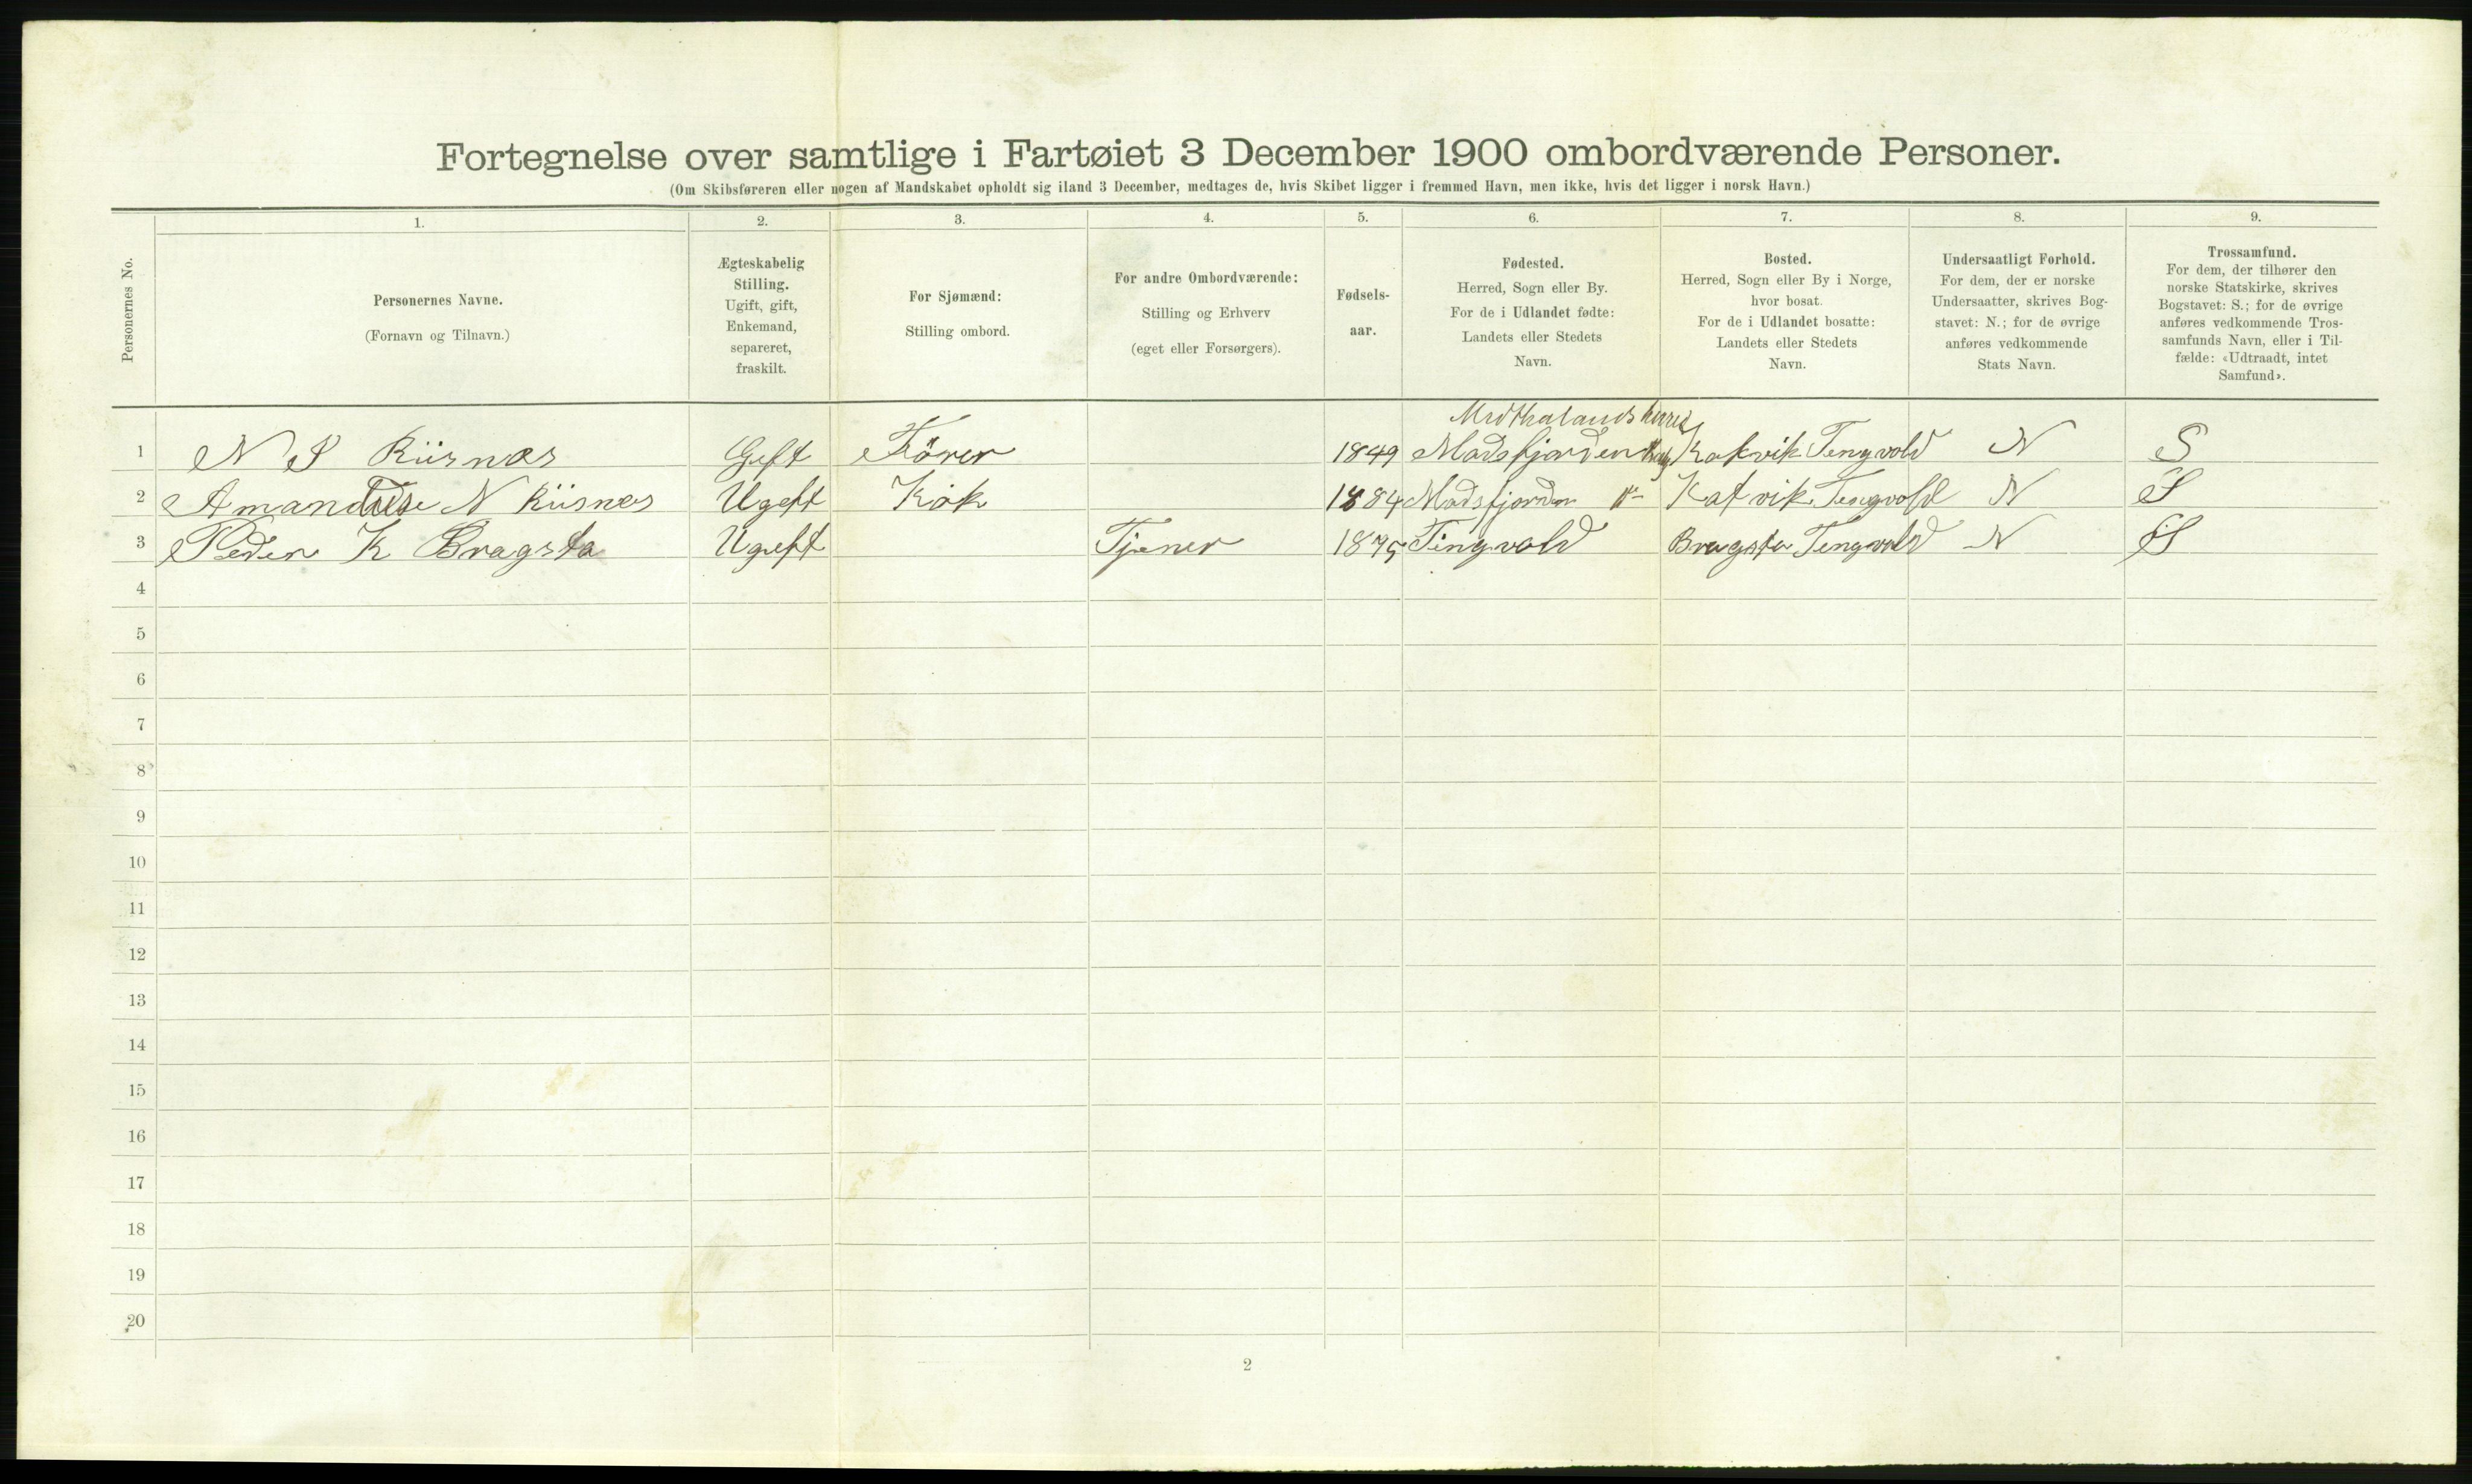 Fortegnelse over samtlige i Fartøiet 3 December 1900 ombordværende Personer.
(Om Skibsføreren eller nogen af Mandskabet opholdt sig iland 3 December, medtages de, hvis Skibet ligger i fremmed Havn, men ikke, hvis det ligger i norsk Havn.)
Personernes No.
1.
Personernes Navne.
(Fornavn og Tilnavn.)
2.
Ægteskabelig
Stilling.
Ugift, gift,
Enkemand,
separeret,
fraskilt.
3.
For Sjømænd:
Stilling ombord.
4.
For andre Ombordværende:
Stilling og Erhverv
(eget eller Forsørgers).
5.
Fødsels-
aar.
6.
Fødested.
Herred, Sogn eller By.
For de i Udlandet fødte:
Landets eller Stedets
Navn.
7.
Bosted.
Herred, Sogn eller By i Norge,
hvor bosat.
For de i Udlandet bosatte:
Landets eller Stedets
Navn.
8.
Undersaatligt Forhold.
For dem, der er norske
Undersaatter, skrives Bog-
stavet: N.; for de øvrige
anføres vedkommende
Stats Navn.
9.
Trossamfund.
For dem, der tilhører den
norske Statskirke, skrives
Bogstavet: S.; for de øvrige
anføres vedkommende Tros-
samfunds Navn, eller i Til-
fælde: «Udtraadt, intet
Samfund».
1 N S Riisnæs Geft Förer 1849 Madsfjorden Kakvik Tengvold N S
2 N Riisnes Ugeft Kok 1884 Madsfjorden Kafvik Tengvold N S
3 Peder K Bragsta Ugeft Tjener 1875 Tingvold Bragsta Tengvold N S
4
5
6
7
8
9
10
11
12
13
14
15
16
17
18
19
20
2